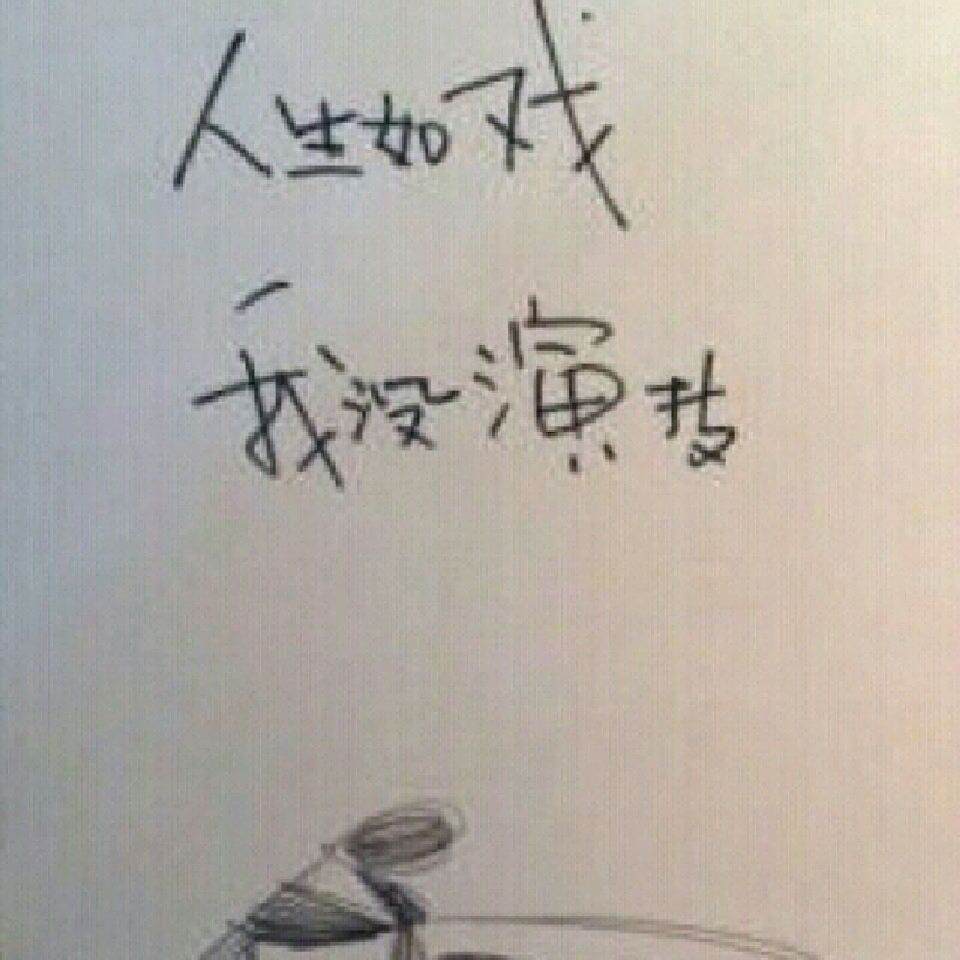 人生如戏
我没演技